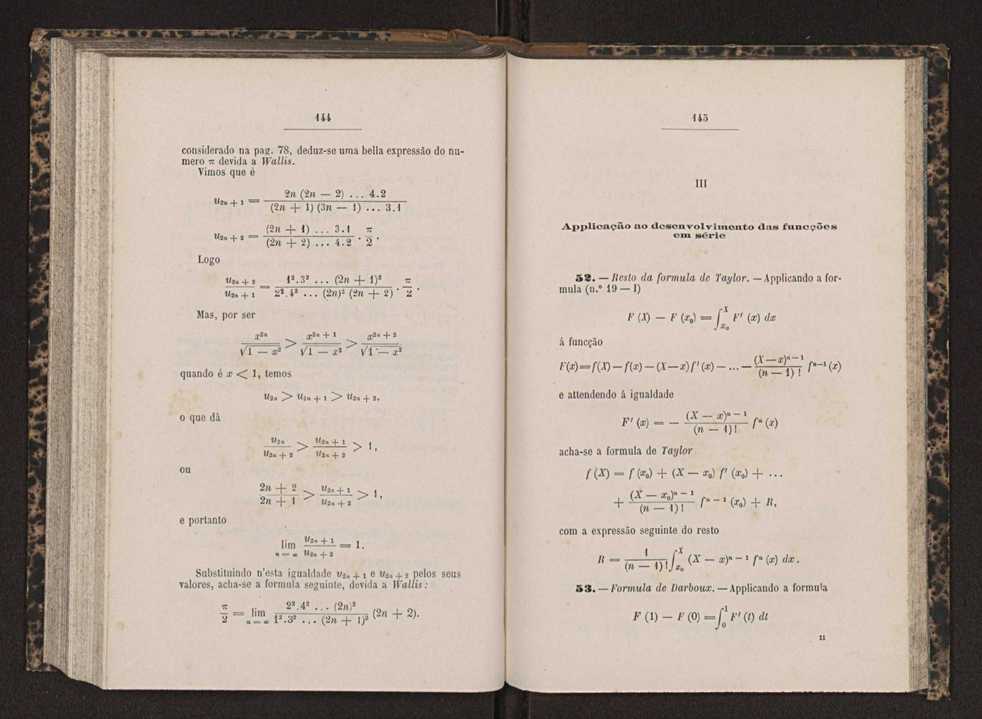 144
considerado na pag. 78, deduz-se uma bella expressão do nu-
mero π devida a Wallis.
Vimos que é
u₂ₙ₊₁ = 2n (2n — 2) ... 4.2 / (2n + 1) (3n — 1) ... 3.1
u₂ₙ₊₂ = (2n + 1) ... 3.1 / (2n + 2) ... 4.2 . π/2 .
Logo
u₂ₙ₊₂ / u₂ₙ₊₁ = 1².3² ... (2n + 1)² / 2².4² ... (2n)² (2n + 2) . π/2 .
Mas, por ser
x²ⁿ / √(1 — x²) > x²ⁿ⁺¹ / √(1 — x²) > x²ⁿ⁺² / √(1 — x²)
quando é x < 1, temos
u₂ₙ > u₂ₙ₊₁ > u₂ₙ₊₂,
o que dá
u₂ₙ / u₂ₙ₊₂ > u₂ₙ₊₁ / u₂ₙ₊₂ > 1,
ou
2n + 2 / 2n + 1 > u₂ₙ₊₁ / u₂ₙ₊₂ > 1,
e portanto
lim n = ∞ u₂ₙ₊₁ / u₂ₙ₊₂ = 1.
Substituindo n'esta igualdade u₂ₙ₊₁ e u₂ₙ₊₂ pelos seus
valores, acha-se a formula seguinte, devida a Wallis:
π/2 = lim n = ∞ 2².4² ... (2n)² / 1².3² ... (2n + 1)² (2n + 2).
145
III
Applicação ao desenvolvimento das funcções
em série
52. — Resto da formula de Taylor. — Applicando a for-
mula (n.º 19 — I)
F (X) — F (x₀) = ∫x₀^X F' (x) dx
á funcção
F(x) = f(X) — f(x) — (X — x) f' (x) — ... — (X — x)ⁿ⁻¹ / (n — 1) ! fⁿ⁻¹ (x)
e attendendo á igualdade
F' (x) = — (X — x)ⁿ⁻¹ / (n — 1) ! fⁿ (x)
acha-se a formula de Taylor
f (X) = f (x₀) + (X — x₀) f' (x₀) + ...
+ (X — x₀)ⁿ⁻¹ / (n — 1) ! fⁿ⁻¹ (x₀) + R,
com a expressão seguinte do resto
R = 1 / (n — 1) ! ∫x₀^X (X — x)ⁿ⁻¹ fⁿ (x) dx.
53. — Formula de Darboux. — Applicando a formula
F (1) — F (0) = ∫₀¹ F' (t) dt
11